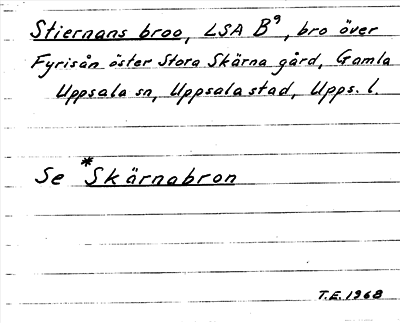 Stiernans broo, LSA B⁹, bro över
Fyrisån öster Stora Skärna gård, Gamla
Uppsala sn, Uppsala stad, Upps. l.
Se *Skärnabron
T.E. 1968